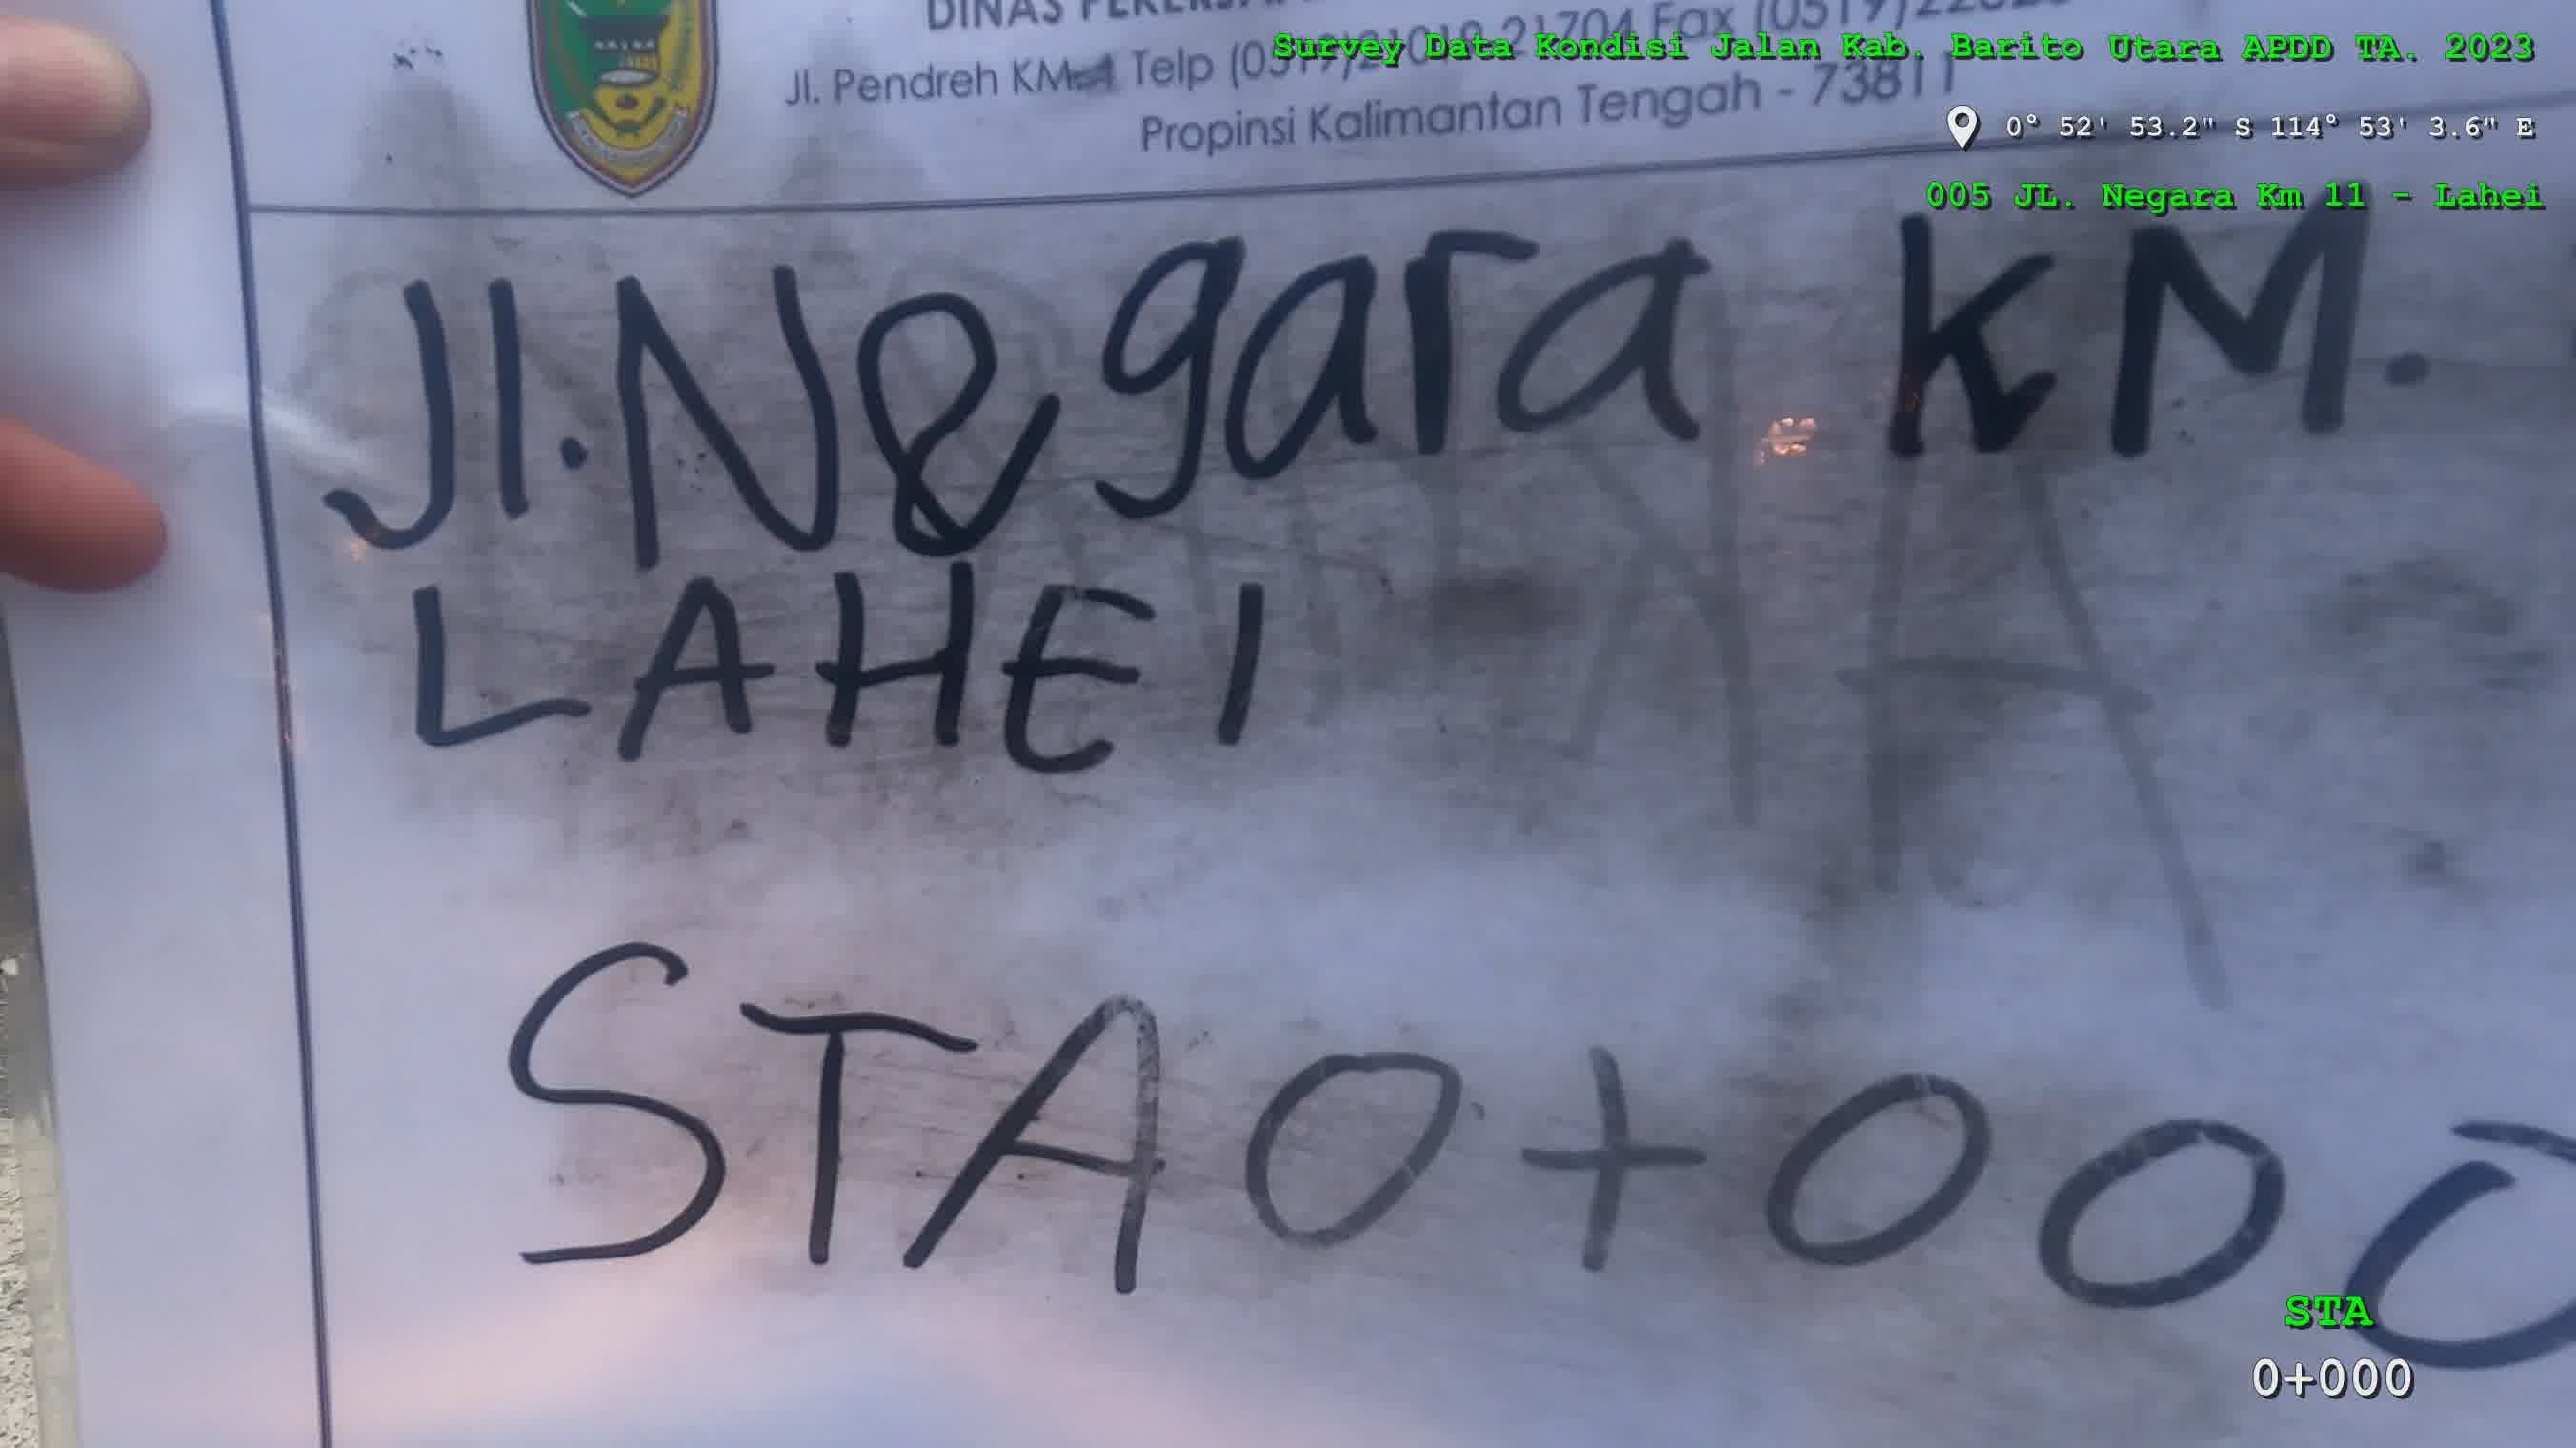 DINAS
Jl. Pendreh KM Telp (0519)21019-21704 Fax
Propinsi Kalimantan Tengah - 73811
Survey Data Kondisi Jalan Kab. Barito Utara APDD TA. 2023
0° 52' 53.2" S 114° 53' 3.6" E
005 JL. Negara Km 11 - Lahei
Jl. Negara KM.
LAHEI
STA 0+000
STA
0+000